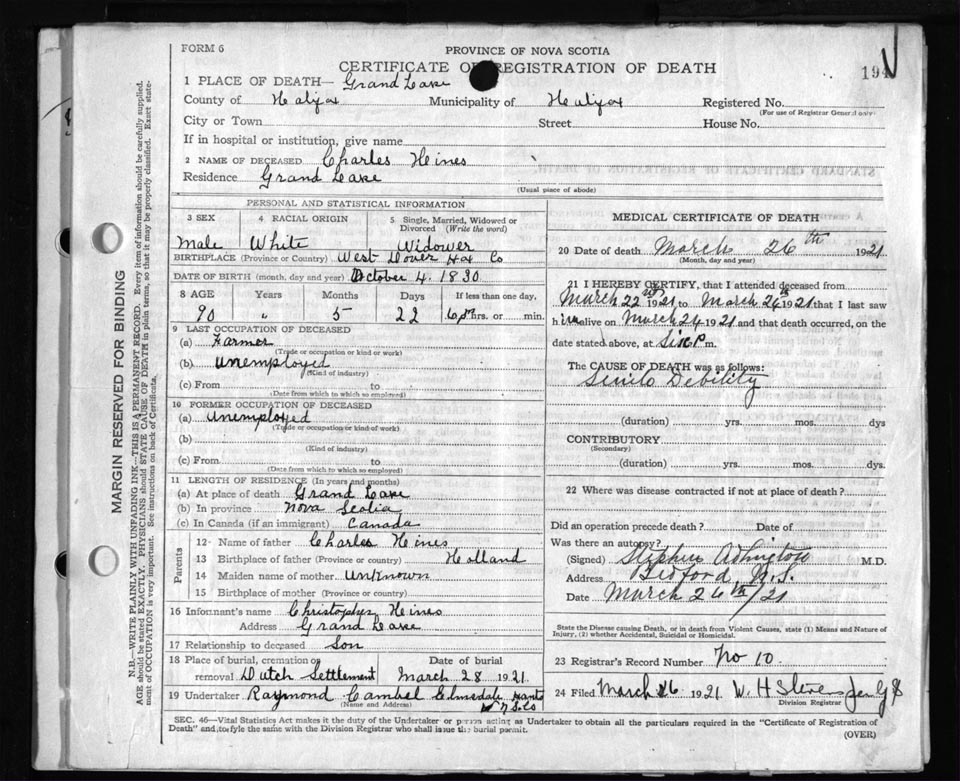 FORM 6
PROVINCE OF NOVA SCOTIA
CERTIFICATE OF REGISTRATION OF DEATH
194
1 PLACE OF DEATH— Grand Lake
County of Halifax Municipality of Halifax Registered No.
(For use of Registrar General only)
City or Town Street House No.
If in hospital or institution, give name
2 NAME OF DECEASED Charles Heines
Residence Grand Lake
(Usual place of abode)
PERSONAL AND STATISTICAL INFORMATION
3 SEX 4 RACIAL ORIGIN 5 Single, Married, Widowed or Divorced (Write the word)
Male White Widower
BIRTHPLACE (Province or Country) West Dover Hax Co
DATE OF BIRTH (month, day and year) October 4. 1830
8 AGE Years Months Days If less than one day,
90 " 5 22 hrs. or min.
9 LAST OCCUPATION OF DECEASED
(a) Farmer
(Trade or occupation or kind or work)
(b) Unemployed
(Kind of industry)
(c) From to
(Date from which to which so employed)
10 FORMER OCCUPATION OF DECEASED
(a) Unemployed
(Trade or occupation or kind of work)
(b)
(Kind of industry)
(c) From to
(Date from which to which so employed)
11 LENGTH OF RESIDENCE (In years and months)
(a) At place of death Grand Lake
(b) In province Nova Scotia
(c) In Canada (if an immigrant) Canada
Parents
12 Name of father Charles Heines
13 Birthplace of father (Province or country) Holland
14 Maiden name of mother Unknown
15 Birthplace of mother (Province or country)
16 Informant's name Christopher Heines
Address Grand Lake
17 Relationship to deceased Son
18 Place of burial, cremation or removal Dutch Settlement Date of burial March 28 1921.
19 Undertaker Raymond Cambel Elmsdale Hants
(Name and Address)
MEDICAL CERTIFICATE OF DEATH
20 Date of death March 26th 1921
(Month, day and year)
21 I HEREBY CERTIFY, that I attended deceased from
March 22nd 1921 to March 26th 1921 that I last saw
him alive on March 24 1921 and that death occurred, on the
date stated above, at Six P m.
The CAUSE OF DEATH was as follows:
Senile Debility
(duration) yrs. mos. dys
CONTRIBUTORY
(Secondary)
(duration) yrs. mos. dys.
22 Where was disease contracted if not at place of death?
Did an operation precede death? Date of
Was there an autopsy?
(Signed) M.D.
Address Bedford, N.S.
Date March 26th/21
State the Disease causing Death, or in death from Violent Causes, state (1) Means and Nature of
Injury, (2) whether Accidental, Suicidal or Homicidal.
23 Registrar's Record Number No 10.
24 Filed March 26 1921 W. H Stevens
Division Registrar
SEC. 46—Vital Statistics Act makes it the duty of the Undertaker or person acting as Undertaker to obtain all the particulars required in the "Certificate of Registration of
Death" and to fyle the same with the Division Registrar who shall issue the burial permit.
(OVER)
MARGIN RESERVED FOR BINDING
N.B.—WRITE PLAINLY WITH UNFADING INK—THIS IS A PERMANENT RECORD. Every item of information should be carefully supplied.
AGE should be stated EXACTLY. PHYSICIANS should STATE CAUSE OF DEATH in plain terms, so that it may be properly classified. Exact state-
ment of OCCUPATION is very important. See instructions on back of Certificate.